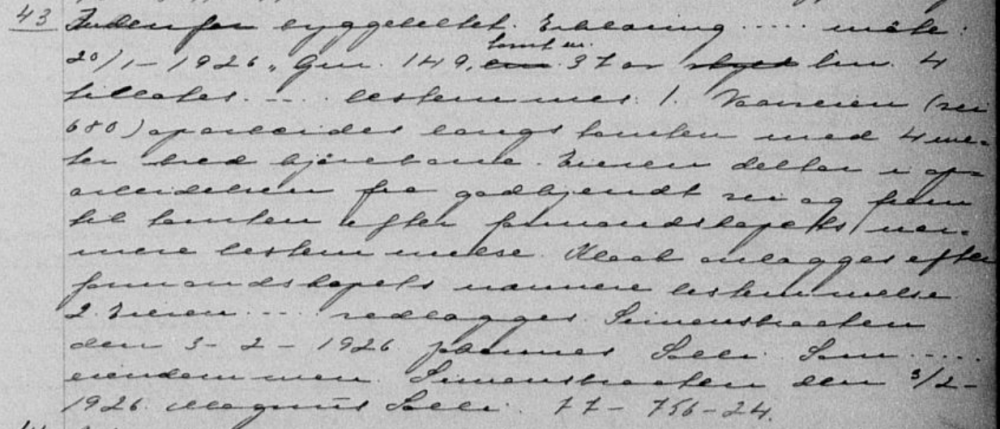 43 Indenfor byggebeltet. Erklæring .... møte
20/1 - 1926. Gnr. 149, tomt nr. 37 av bnr. 4
tillates. .... bestemmes: 1. Vaareien (vei
680) oparbeides langs tomten med 4 me-
ter bred kjørebane. Eieren deltar i op-
arbeidelsen fra godkjendt vei og frem
til tomten efter formandskapets nær-
mere bestemmelse. Kloak anlægges efter
formandskapets nærmere bestemmelse
2. Eieren .... vedlægges Simensbraaten
den 3 - 2 - 1926 Solli. Som ....
eiendommen. Simensbraaten den 3/2 -
1926. Magnus Solli. 77 - 756 - 24.